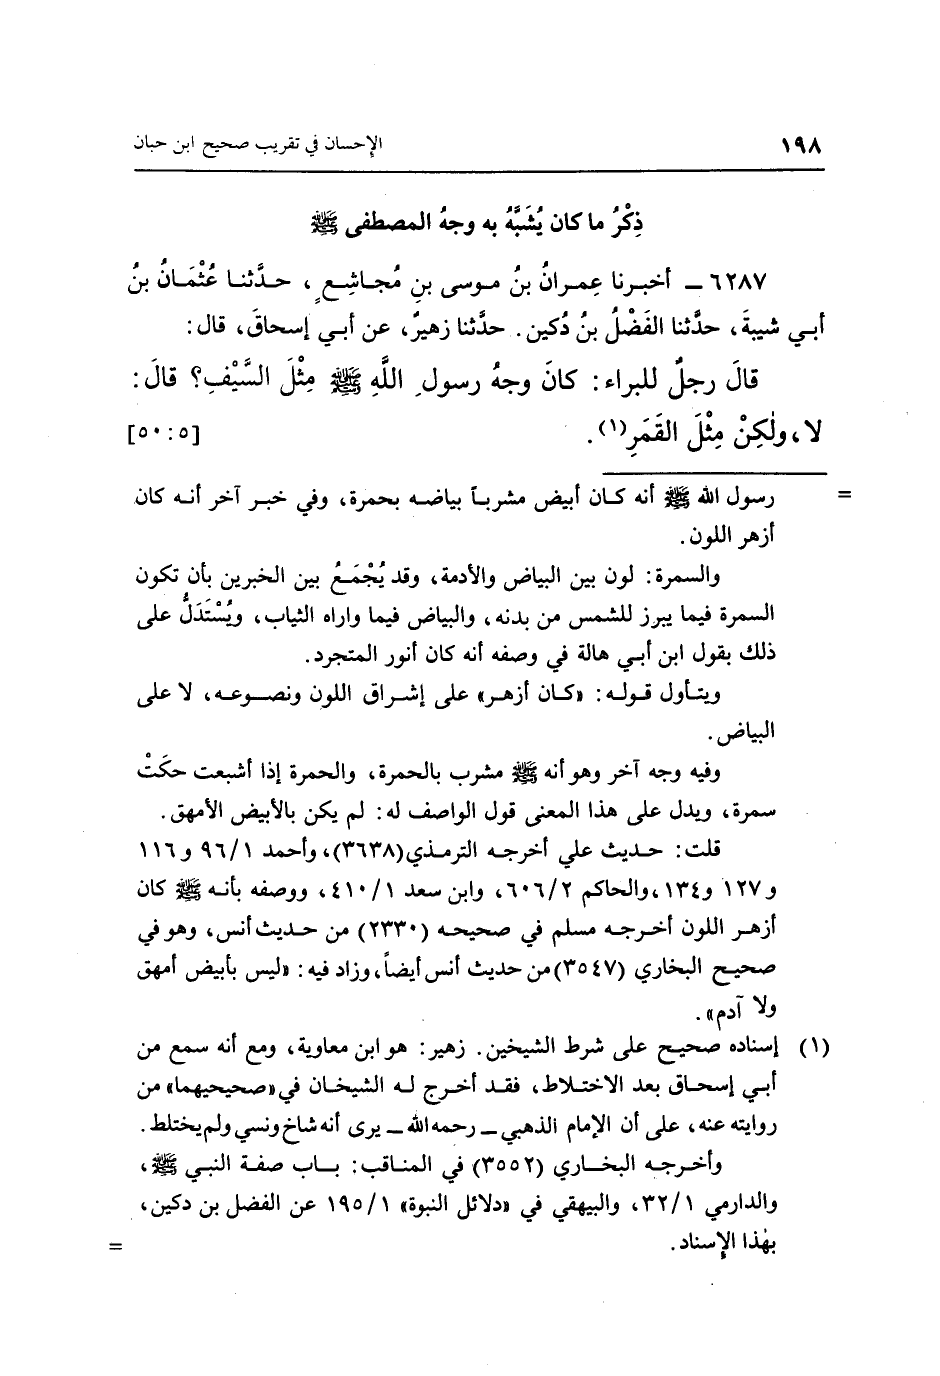 ١٩٨ الإحسان في تقريب صحيح ابن حبان
ذِكْرُ ما كان يُشَبَّهُ به وجهُ المصطفى ﷺ
٦٢٨٧ ــ أخبرنا عِمرانُ بنُ موسى بنِ مُجاشِعٍ، حدَّثنا عُثْمَانُ بنُ
أبي شيبةَ، حدَّثنا الفَضْلُ بنُ دُكين. حدَّثنا زهيرٌ، عن أبي إسحاقَ، قال:
قالَ رجلٌ للبراء: كانَ وجهُ رسولِ اللَّهِ ﷺ مِثْلَ السَّيْفِ؟ قالَ:
لا، ولٰكِنْ مِثْلَ القَمَرِ(١). [٥: ٥٠]
= رسول الله ﷺ أنه كان أبيض مشرباً بياضه بحمرة، وفي خبر آخر أنه كان
أزهر اللون.
والسمرة: لون بين البياض والأدمة، وقد يُجْمَعُ بين الخبرين بأن تكون
السمرة فيما يبرز للشمس من بدنه، والبياض فيما واراه الثياب، ويُسْتَدَلُّ على
ذلك بقول ابن أبي هالة في وصفه أنه كان أنور المتجرد.
ويتأول قوله: «كان أزهر» على إشراق اللون ونصوعه، لا على
البياض.
وفيه وجه آخر وهو أنه ﷺ مشرب بالحمرة، والحمرة إذا أشبعت حكَتْ
سمرة، ويدل على هذا المعنى قول الواصف له: لم يكن بالأبيض الأمهق.
قلت: حديث علي أخرجه الترمذي(٣٦٣٨)، وأحمد ٩٦/١ و١١٦
و١٢٧ و١٣٤، والحاكم ٦٠٦/٢، وابن سعد ٤١٠/١، ووصفه بأنه ﷺ كان
أزهر اللون أخرجه مسلم في صحيحه (٢٣٣٠) من حديث أنس، وهو في
صحيح البخاري (٣٥٤٧) من حديث أنس أيضاً، وزاد فيه: «ليس بأبيض أمهق
ولا آدم».
(١) إسناده صحيح على شرط الشيخين. زهير: هو ابن معاوية، ومع أنه سمع من
أبي إسحاق بعد الاختلاط، فقد أخرج له الشيخان في «صحيحيهما» من
روايته عنه، على أن الإمام الذهبي ــ رحمه الله ــ يرى أنه شاخ ونسي ولم يختلط.
وأخرجه البخاري (٣٥٥٢) في المناقب: باب صفة النبي ﷺ،
والدارمي ٣٢/١، والبيهقي في «دلائل النبوة» ١٩٥/١ عن الفضل بن دكين،
بهٰذا الإسناد. =